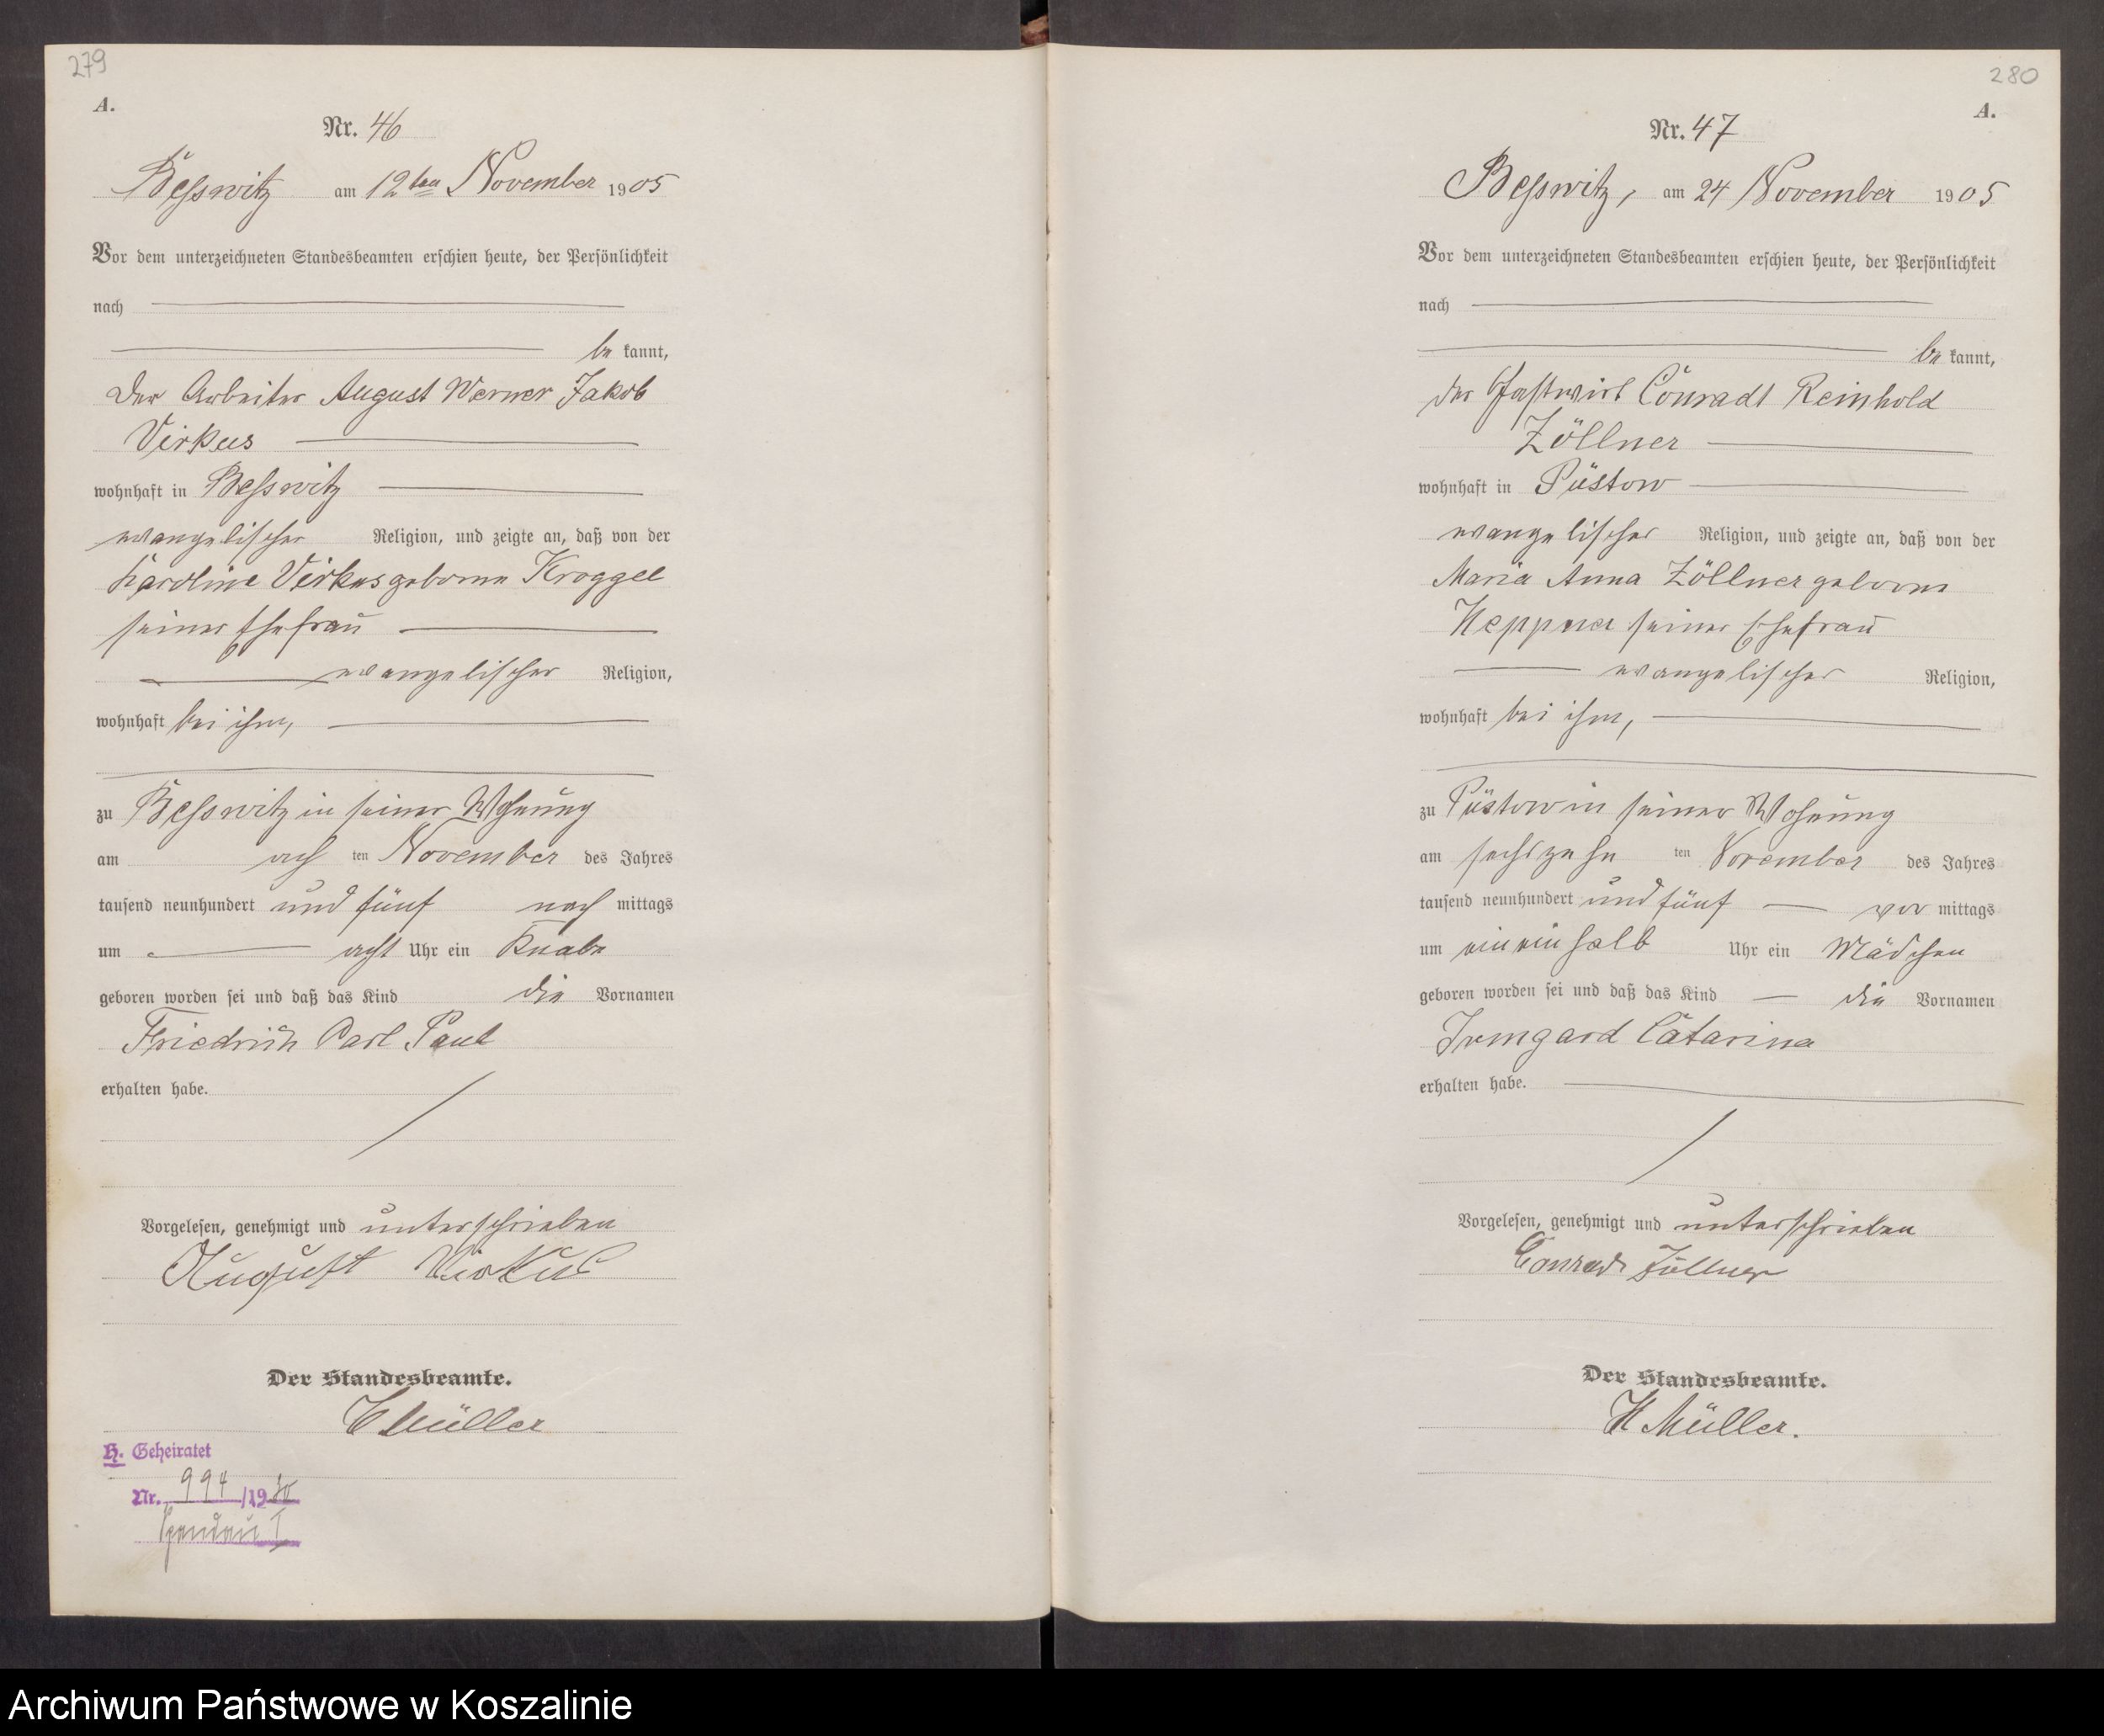 279
A.
Nr. 46
Beßwitz am 12ten November 1905
Vor dem unterzeichneten Standesbeamten erschien heute, der Persönlichkeit
nach
be kannt,
Der Arbeiter August Werner Jakob
Virkus
wohnhaft in Beßwitz
evangelischer Religion, und zeigte an, daß von der
Karoline Virkus geborne Kroggel
seiner Ehefrau
evangelischer Religion,
wohnhaft bei ihm,
zu Beßwitz in seiner Wohnung
am ach ten November des Jahres
tausend neunhundert und fünf nach mittags
um acht Uhr ein Knabe
geboren worden sei und daß das Kind die Vornamen
Friedrich Carl Paul
erhalten habe.
Vorgelesen, genehmigt und unterschrieben
August Virkus
Der Standesbeamte.
H Müller
H. Geheiratet
Nr. 994 /1930
Spandau I
280
A.
Nr. 47
Beßwitz, am 24 November 1905
Vor dem unterzeichneten Standesbeamten erschien heute, der Persönlichkeit
nach
be kannt,
der Gastwirt Conradt Reinhold
Zöllner
wohnhaft in Püstow
evangelischer Religion, und zeigte an, daß von der
Maria Anna Zöllner geborne
Heppner seiner Ehefrau
evangelischer Religion,
wohnhaft bei ihm,
zu Püstow in seiner Wohnung
am sechszehn ten November des Jahres
tausend neunhundert und fünf vor mittags
um ein ein halb Uhr ein Mädchen
geboren worden sei und daß das Kind die Vornamen
Irmgard Catarina
erhalten habe.
Vorgelesen, genehmigt und unterschrieben
Conradt Zöllner
Der Standesbeamte.
H Müller.
Archiwum Państwowe w Koszalinie